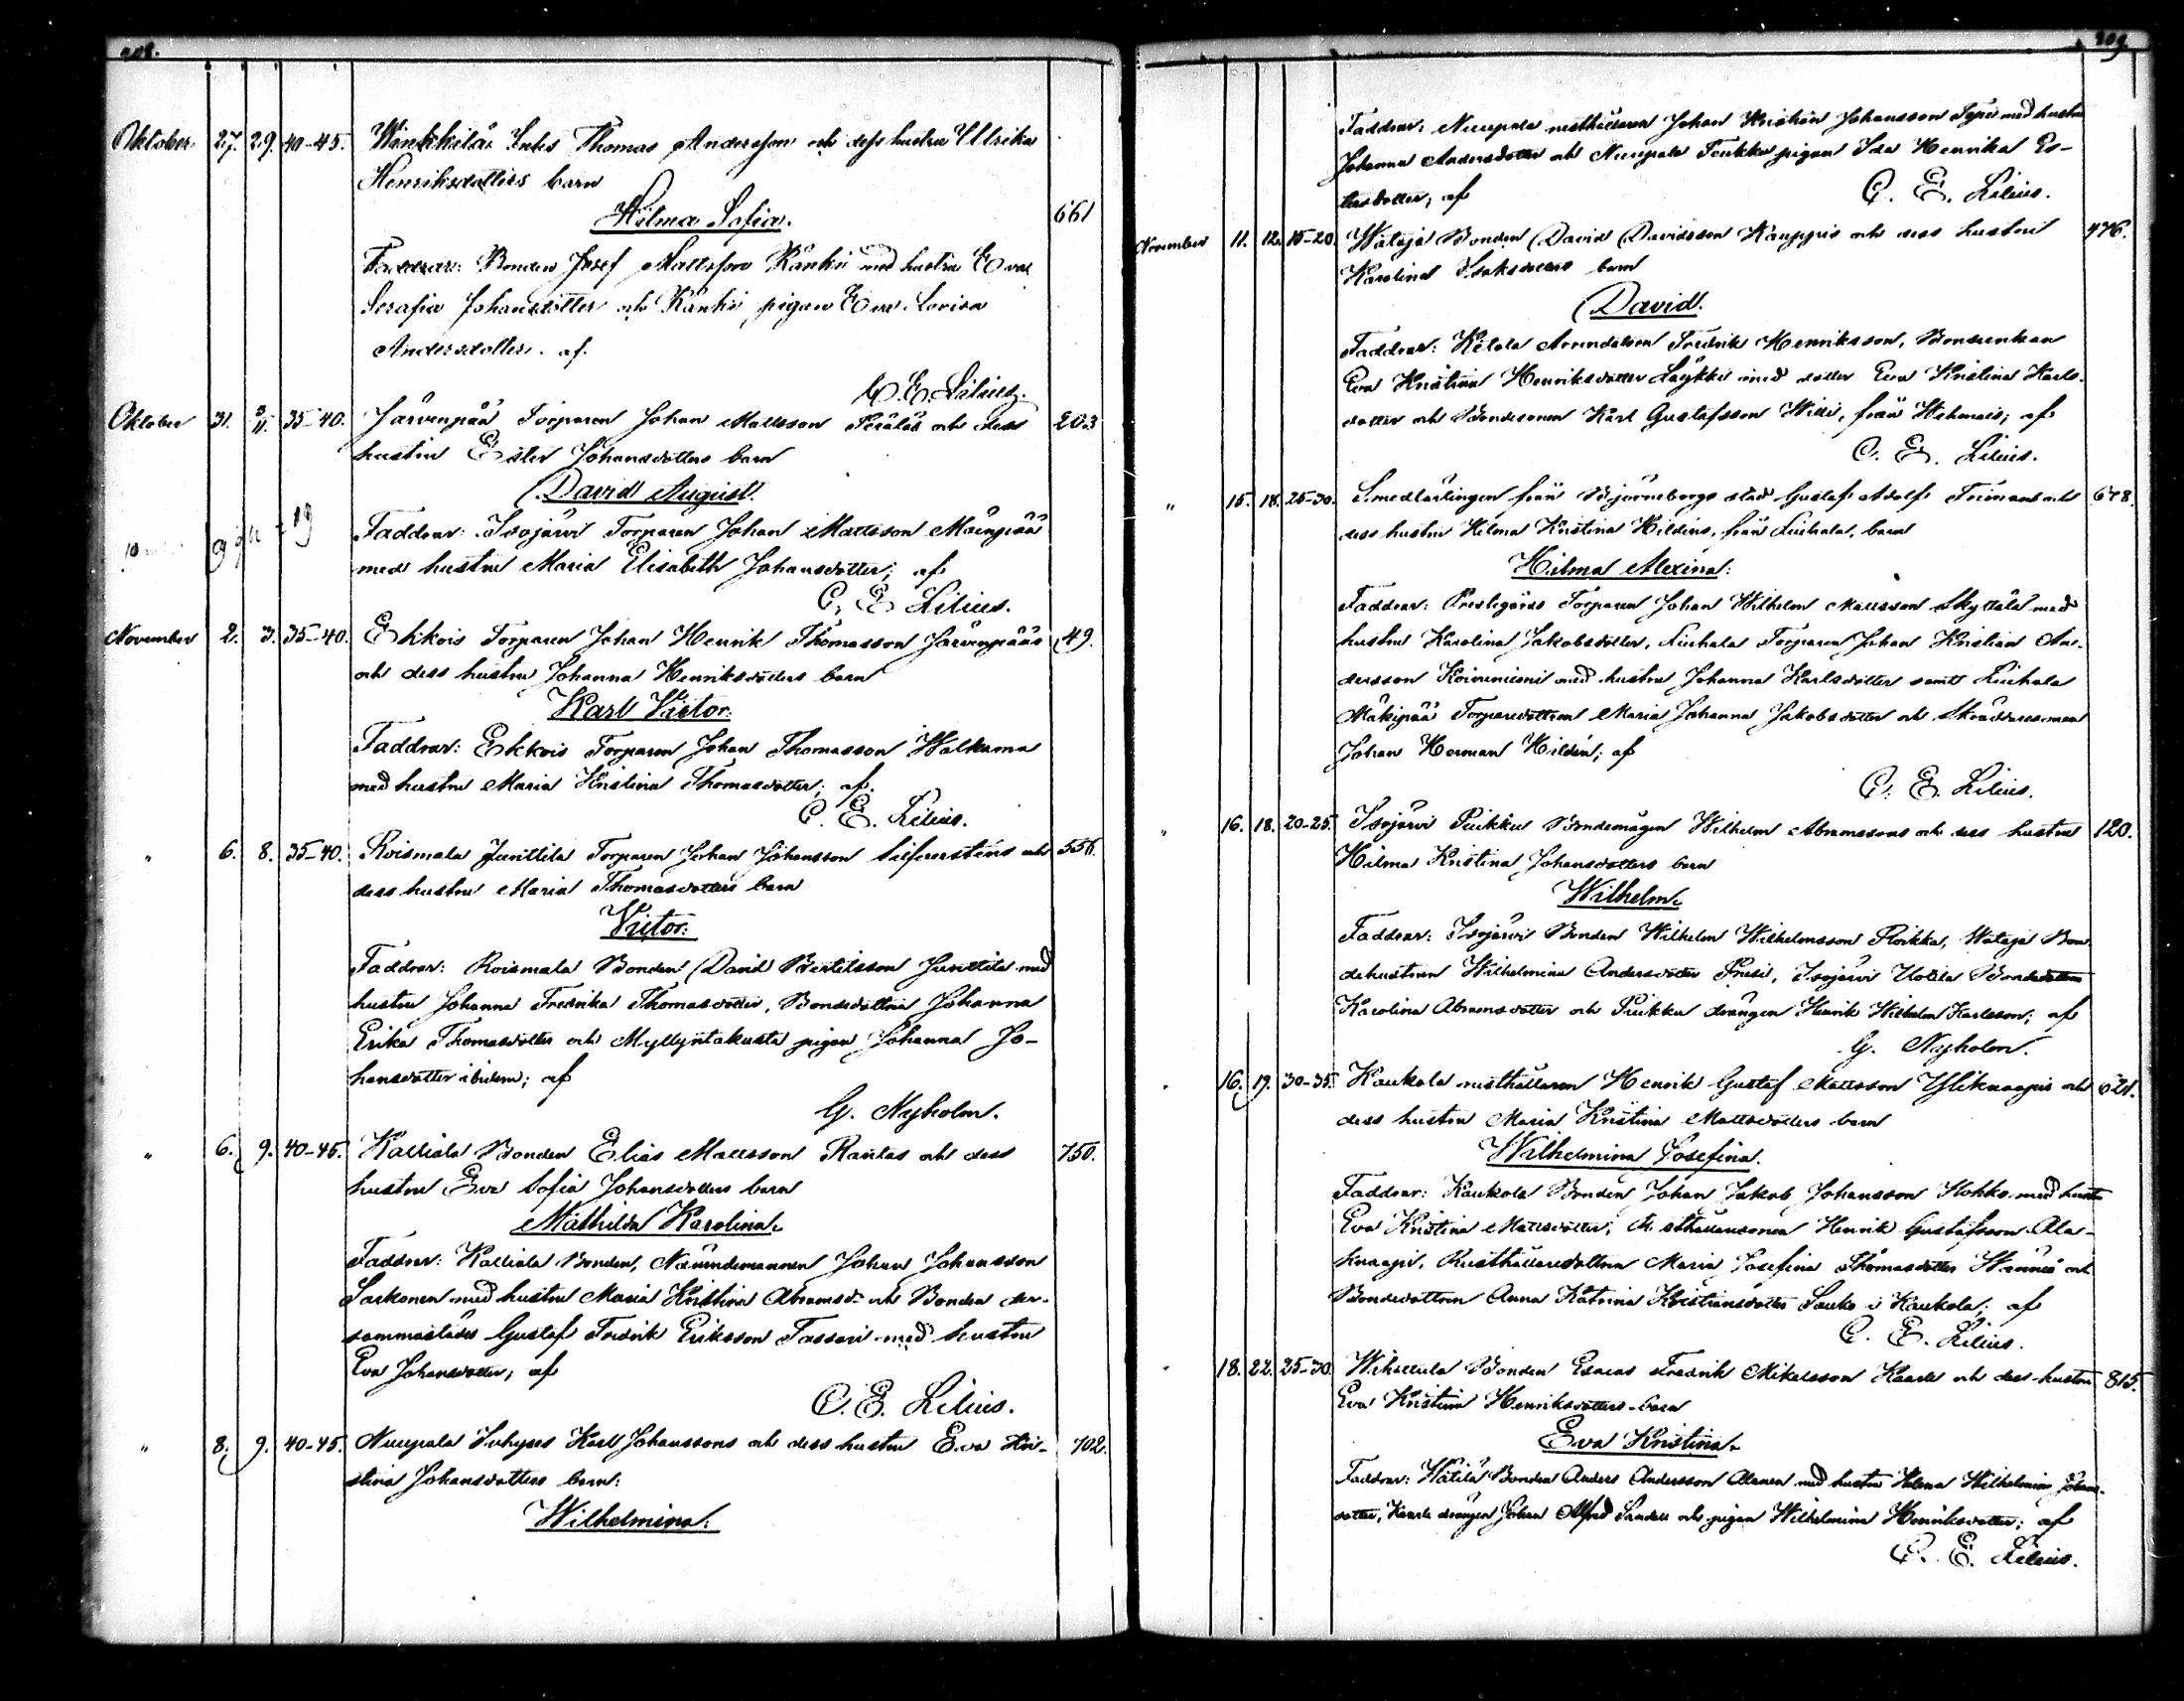 208.
Oktober 27. 29. 40-45. Thomas Andersson och dess hustru Ullrika
Henriksdotters barn
Hilma Sofia. 661
Faddrar: Bonden Josef Mattsson Kánki med hustru Eva
Serafia Johansdotter och Kánki pigan Eva Lovisa
Andersdotter. af.
C. E. Lilius.
Oktober 31. 3/11. 35-40. Järvenpää Torparen Johan Mattsson och dess 203
hustru Ester Johansdotters barn
David August.
Faddrar: Isojärvi Torparen Johan Mattsson Mäenpää
med hustru Maria Elisabeth Johansdotter; af
C. E. Lilius.
November 2. 3. 35-40. Ekkois Torparen Johan Henrik Thomasson Järvenpääs 49.
och dess hustru Johanna Henriksdotters barn
Karl Victor.
Faddrar: Ekkois Torparen Johan Thomasson Walkama
med hustru Maria Kristina Thomasdotter; af.
C. E. Lilius.
" 6. 8. 35-40. Roismala Junttila Torparen Johan Johansson Silferstens och 556.
dess hustru Maria Thomasdotters barn
Victor.
Faddrar: Roismala Bonden David Bertilsson Junttila med
hustru Johanna Fredrika Thomasdotter, Bondedottren Johanna
Erika Thomasdotter och Myllyntakusta pigan Johanna Jo-
hansdotter ibidem; af
G. Nyholm.
" 6. 9. 40-45. Kalliala Bonden Elias Mattsson Rantas och dess 750.
hustru Eva Sofia Johansdotters barn
Mathilda Karolina.
Faddrar: Kalliala Bonden, Nämndemannen Johan Johansson
Sarkonen med hustru Maria Kristina Abramsd. och Bonden der-
sammastädes Gustaf Fredrik Eriksson Tassari med hustru
Eva Johansdotter; af
C. E. Lilius.
" 8. 9. 40-45. Nuupala Inhyses Karl Johanssons och dess hustru Eva Kri- 702.
stina Johansdotters barn:
Wilhelmina.
209.
Faddrar: Nuupala rusthållaren Johan Kristian Johansson med hustru
Johanna Andersdotter och Nuupala pigan Ida Henrika
af
C. E. Lilius.
November 11. 12. 15-20. Wataja Bonden David Davidsson Kauppis och dess hustru 476.
Karolina Isaksdotters barn
David.
Faddrar: Ketola Arrendatorn Fredrik Henriksson, Bondenkan
Eva Kristina Henriksdotter Löykki med dotter Eva Kristina Karls-
dotter och Bondesonen Karl Gustafsson Willi, från af
C. E. Lilius.
" 15. 18. 25-30. Smedlärlingen från Björneborgs stad Gustaf Adolf och 678.
dess hustru Hilma Kristina Hildéns, från Liuhala, barn
Hilma Alexina.
Faddrar: Prestgårds Torparen Johan Wilhelm Mattsson Skyttälä med
hustru Karolina Jakobsdotter, Liuhala Torparen Johan Kristian An-
dersson Koivuniemi med hustru Johanna Karlsdotter samt Liuhala
Mäkipää Torparedottren Maria Johanna Jakobsdotter och
Johan Herman Hildén; af
C. E. Lilius.
" 16. 18. 20-25. Isojärvi Puikku Bondemågen Wilhelm Abramssons och dess hustru 120.
Hilma Kristina Johansdotters barn
Wilhelm.
Faddrar: Isojärvi Bonden Wilhelm Wilhelmsson Wataja Bon-
dehustrun Wilhelmina Andersdotter Isojärvi Bondedottren
Karolina Abramsdotter och Puikku drängen Henrik Wilhelm Karlsson; af
G. Nyholm.
" 16. 19. 30-35. Kaukola rusthållaren Henrik Gustaf Mattsson Yliknaapis och 621.
dess hustru Maria Kristina Mattsdotters barn
Wilhelmina Josefina.
Faddrar: Kaukola Bonden Johan Jakob Johansson med hustru
Eva Kristina Mattsdotter; Rusthållaresonen Henrik Gustafsson Ala-
knaapi, Rusthållaredottren Maria Josefina Thomasdotter och
Bondedottren Anna Katrina Kristiansdotter Sauko i Kaukola; af
C. E. Lilius.
" 18. 22. 25-30. Wihattula Bonden Esaias Fredrik Mikelsson Kaarle och dess hustru 815.
Eva Kristina Henriksdotters barn
Eva Kristina.
Faddrar: Hätilä Bonden Anders Andersson Alanen med hustru Wilhelmina Johans-
dotter, Kaarle drängen Johan Alfred och pigan Wilhelmina Henriksdotter; af
C. E. Lilius.